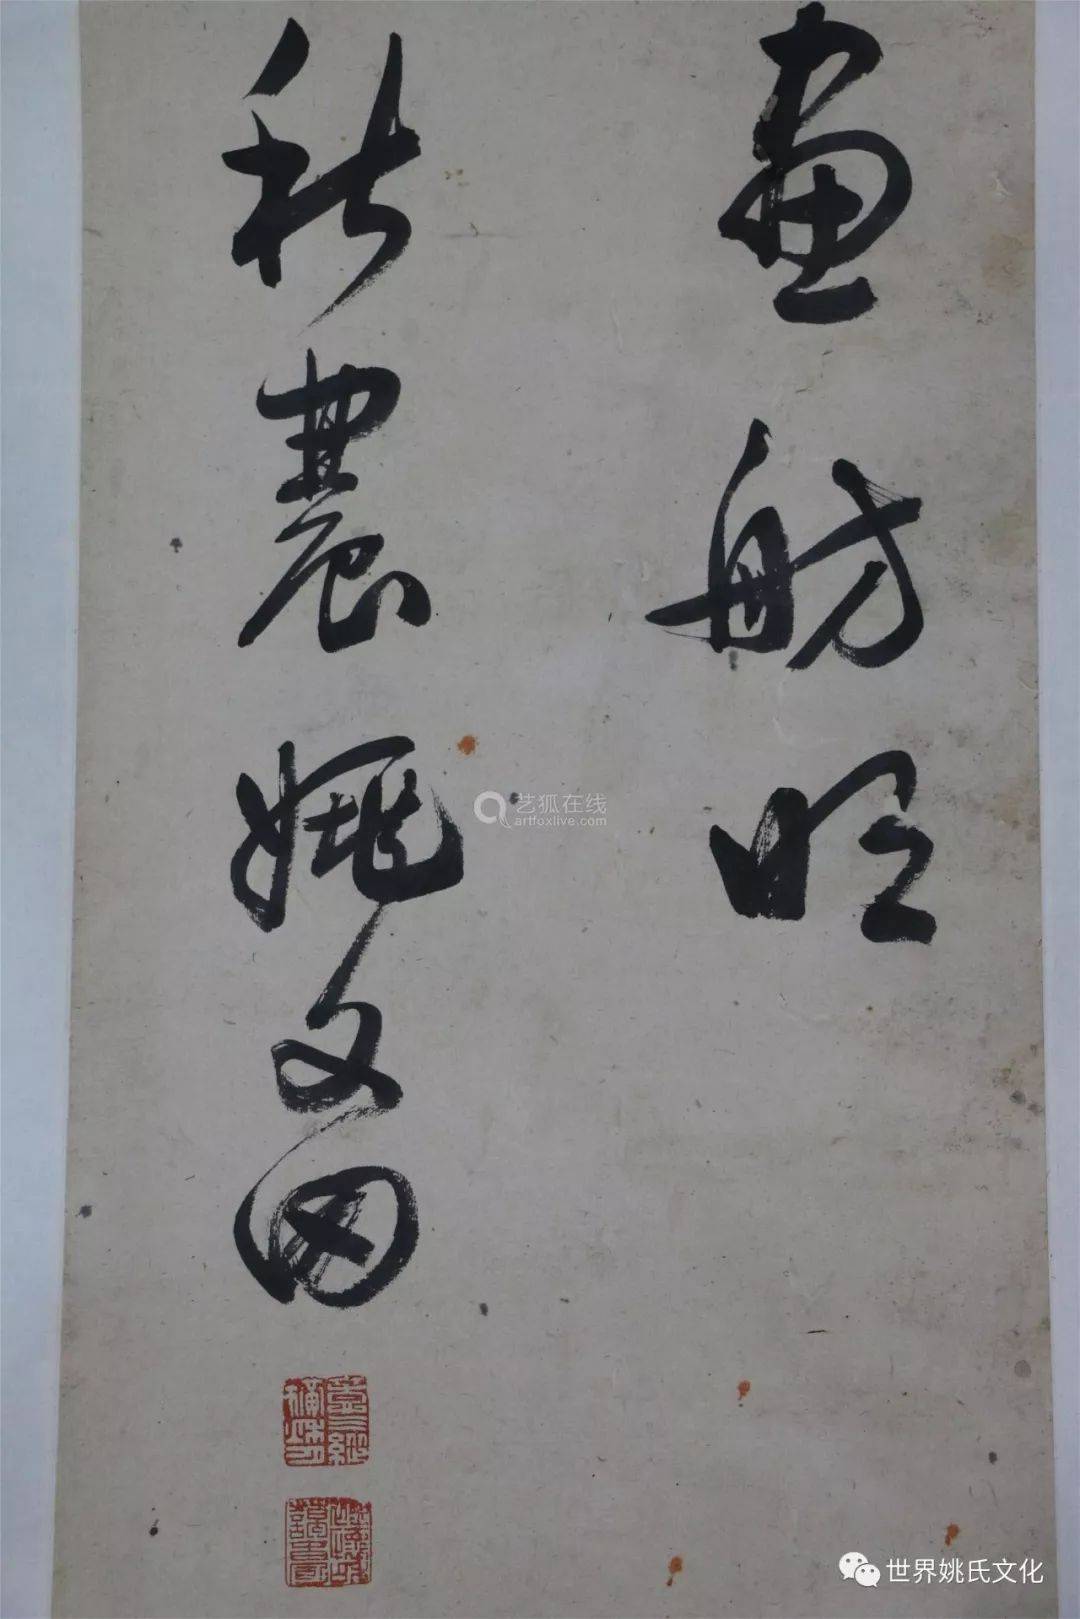 画舫明
秋農姚文田
艺狐在线
artfoxlive.com
世界姚氏文化